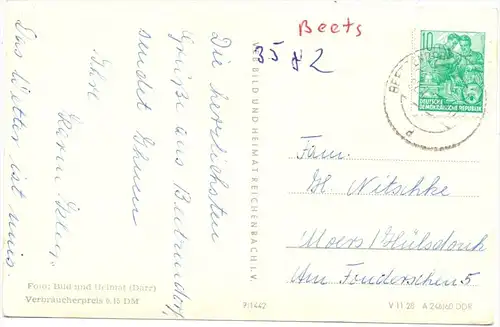 Beets
35 82
Die herzlichsten
Grüße aus Beetzendorf,
sendet Ihnen
Ihre
Das Wetter ist
VEB BILD UND HEIMAT REICHENBACH I. V.
10
DEUTSCHE
DEMOKRATISCHE REPUBLIK
Fam.
H. Nitschke
Moers/Hülsdonk
Am Fonderschen 5
Foto: Bild und Heimat (Dörr)
Verbraucherpreis 0,15 DM
9/1442
V 11 28 A 246/60 DDR